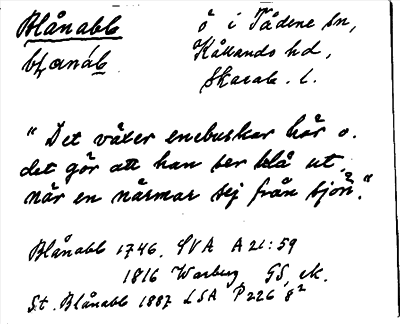 Blånabb
ö i Tådene sn,
Kållands hd,
Skarab. l.
"Det växer enebuskar här o.
det gör att han ser blå ut,
när en närmar sej från sjön."
Blånabb 1746. SVA A21:59
1816 Warberg GS, ek.
St. Blånabb 1887 LSA P226 8²